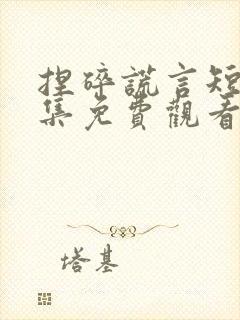 捏碎謊言短
集免費觀看
塔基